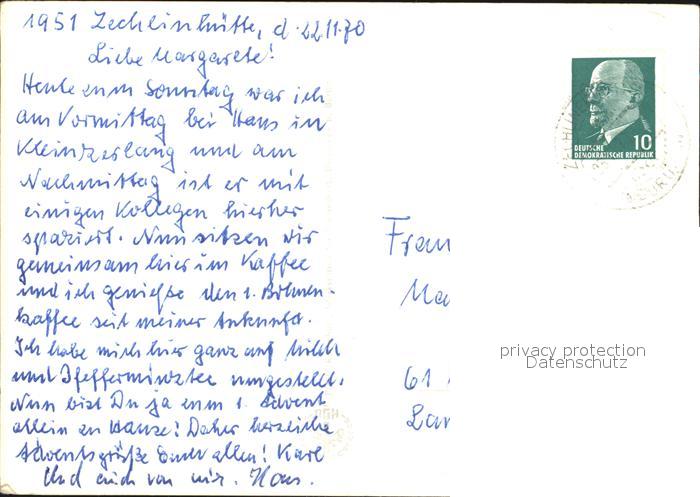 1951 Zechlinhütte, d. 22.11.70
Liebe Margarete!
Heute zum Sonntag war ich
am Vormittag bei Hans in
Kleinzerlang und am
Nachmittag ist er mit
einigen Kollegen hierher
spaziert. Nun sitzen wir
gemeinsam hier im Kaffee
und ich genieße den 1. Bohnen-
kaffee seit meiner Ankunft.
Ich habe mich hier ganz auf Milch
und Pfefferminztee umgestellt.
Nun bist Du ja zum 1. Advent
allein zu Hause! Daher herzliche
Adventsgrüße Euch allen! Karl
Und auch von mir. Hans.
10
DEUTSCHE
DEMOKRATISCHE REPUBLIK
Frau
Ma
61
Lan
privacy protection
Datenschutz